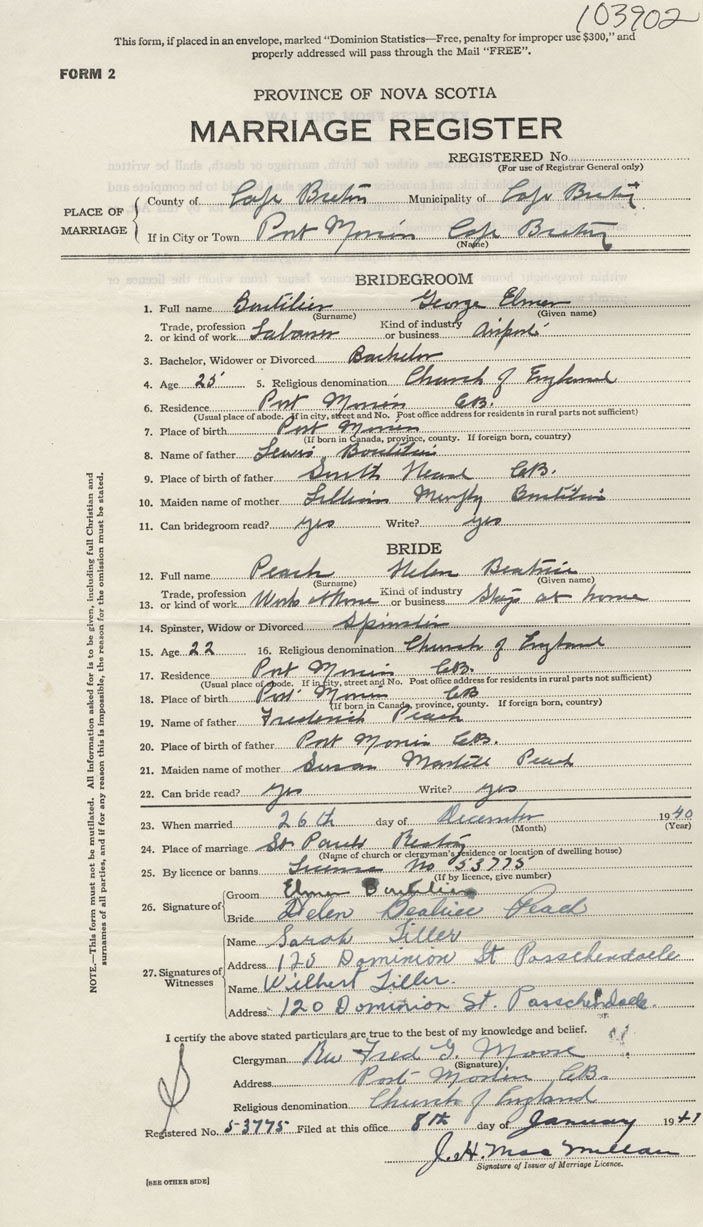 103902
This form, if placed in an envelope, marked "Dominion Statistics—Free, penalty for improper use $300," and
properly addressed will pass through the Mail "FREE".
FORM 2
PROVINCE OF NOVA SCOTIA
MARRIAGE REGISTER
REGISTERED No.
(For use of Registrar General only)
PLACE OF MARRIAGE
County of Cape Breton Municipality of Cape Breton
If in City or Town Port Morien Cape Breton
(Name)
BRIDEGROOM
1. Full name Boutilier George Elmer
(Surname) (Given name)
2. Trade, profession or kind of work Labourer Kind of industry or business Airport
3. Bachelor, Widower or Divorced Bachelor
4. Age 25 5. Religious denomination Church of England
6. Residence Port Morien C.B.
(Usual place of abode. If in city, street and No. Post office address for residents in rural parts not sufficient)
7. Place of birth Port Morien
(If born in Canada, province, county. If foreign born, country)
8. Name of father Lewis Boutilier
9. Place of birth of father South Head C.B.
10. Maiden name of mother Lillian Murphy Boutilier
11. Can bridegroom read? yes Write? yes
BRIDE
12. Full name Peach Helen Beatrice
(Surname) (Given name)
13. Trade, profession or kind of work Work at Home Kind of industry or business Stays at home
14. Spinster, Widow or Divorced Spinster
15. Age 22 16. Religious denomination Church of England
17. Residence Port Morien C.B.
(Usual place of abode. If in city, street and No. Post office address for residents in rural parts not sufficient)
18. Place of birth Port Morien C.B.
(If born in Canada, province, county. If foreign born, country)
19. Name of father Frederick Peach
20. Place of birth of father Port Morien C.B.
21. Maiden name of mother Susan Martell Peach
22. Can bride read? yes Write? yes
23. When married 26th day of December 1940
(Month) (Year)
24. Place of marriage St Pauls Rectory
(Name of church or clergyman's residence or location of dwelling house)
25. By licence or banns License No 53775
(If by licence, give number)
26. Signature of
Groom Elmer Boutilier
Bride Helen Beatrice Peach
27. Signatures of Witnesses
Name Sarah Tiller
Address 120 Dominion St Passchendaele
Name Wilbert Tiller.
Address 120 Dominion St. Passchendaele.
I certify the above stated particulars are true to the best of my knowledge and belief.
Clergyman Rev Fred G. Moose
(Signature)
Address Port Morien C.B.
Religious denomination Church of England
Registered No. 53775 Filed at this office 8th day of January 1941
J. H. MacMillan
Signature of Issuer of Marriage Licence.
[SEE OTHER SIDE]
NOTE.—This form must not be mutilated. All information asked for is to be given, including full Christian and
surnames of all parties, and if for any reason this is impossible, the reason for the omission must be stated.